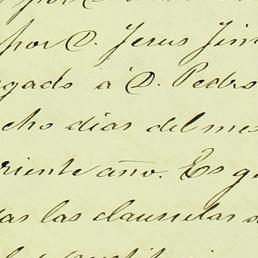 por D. Jesus Jim
gado á D. Pedro
cho dias del mes
riente año. Es g
as las clausulas